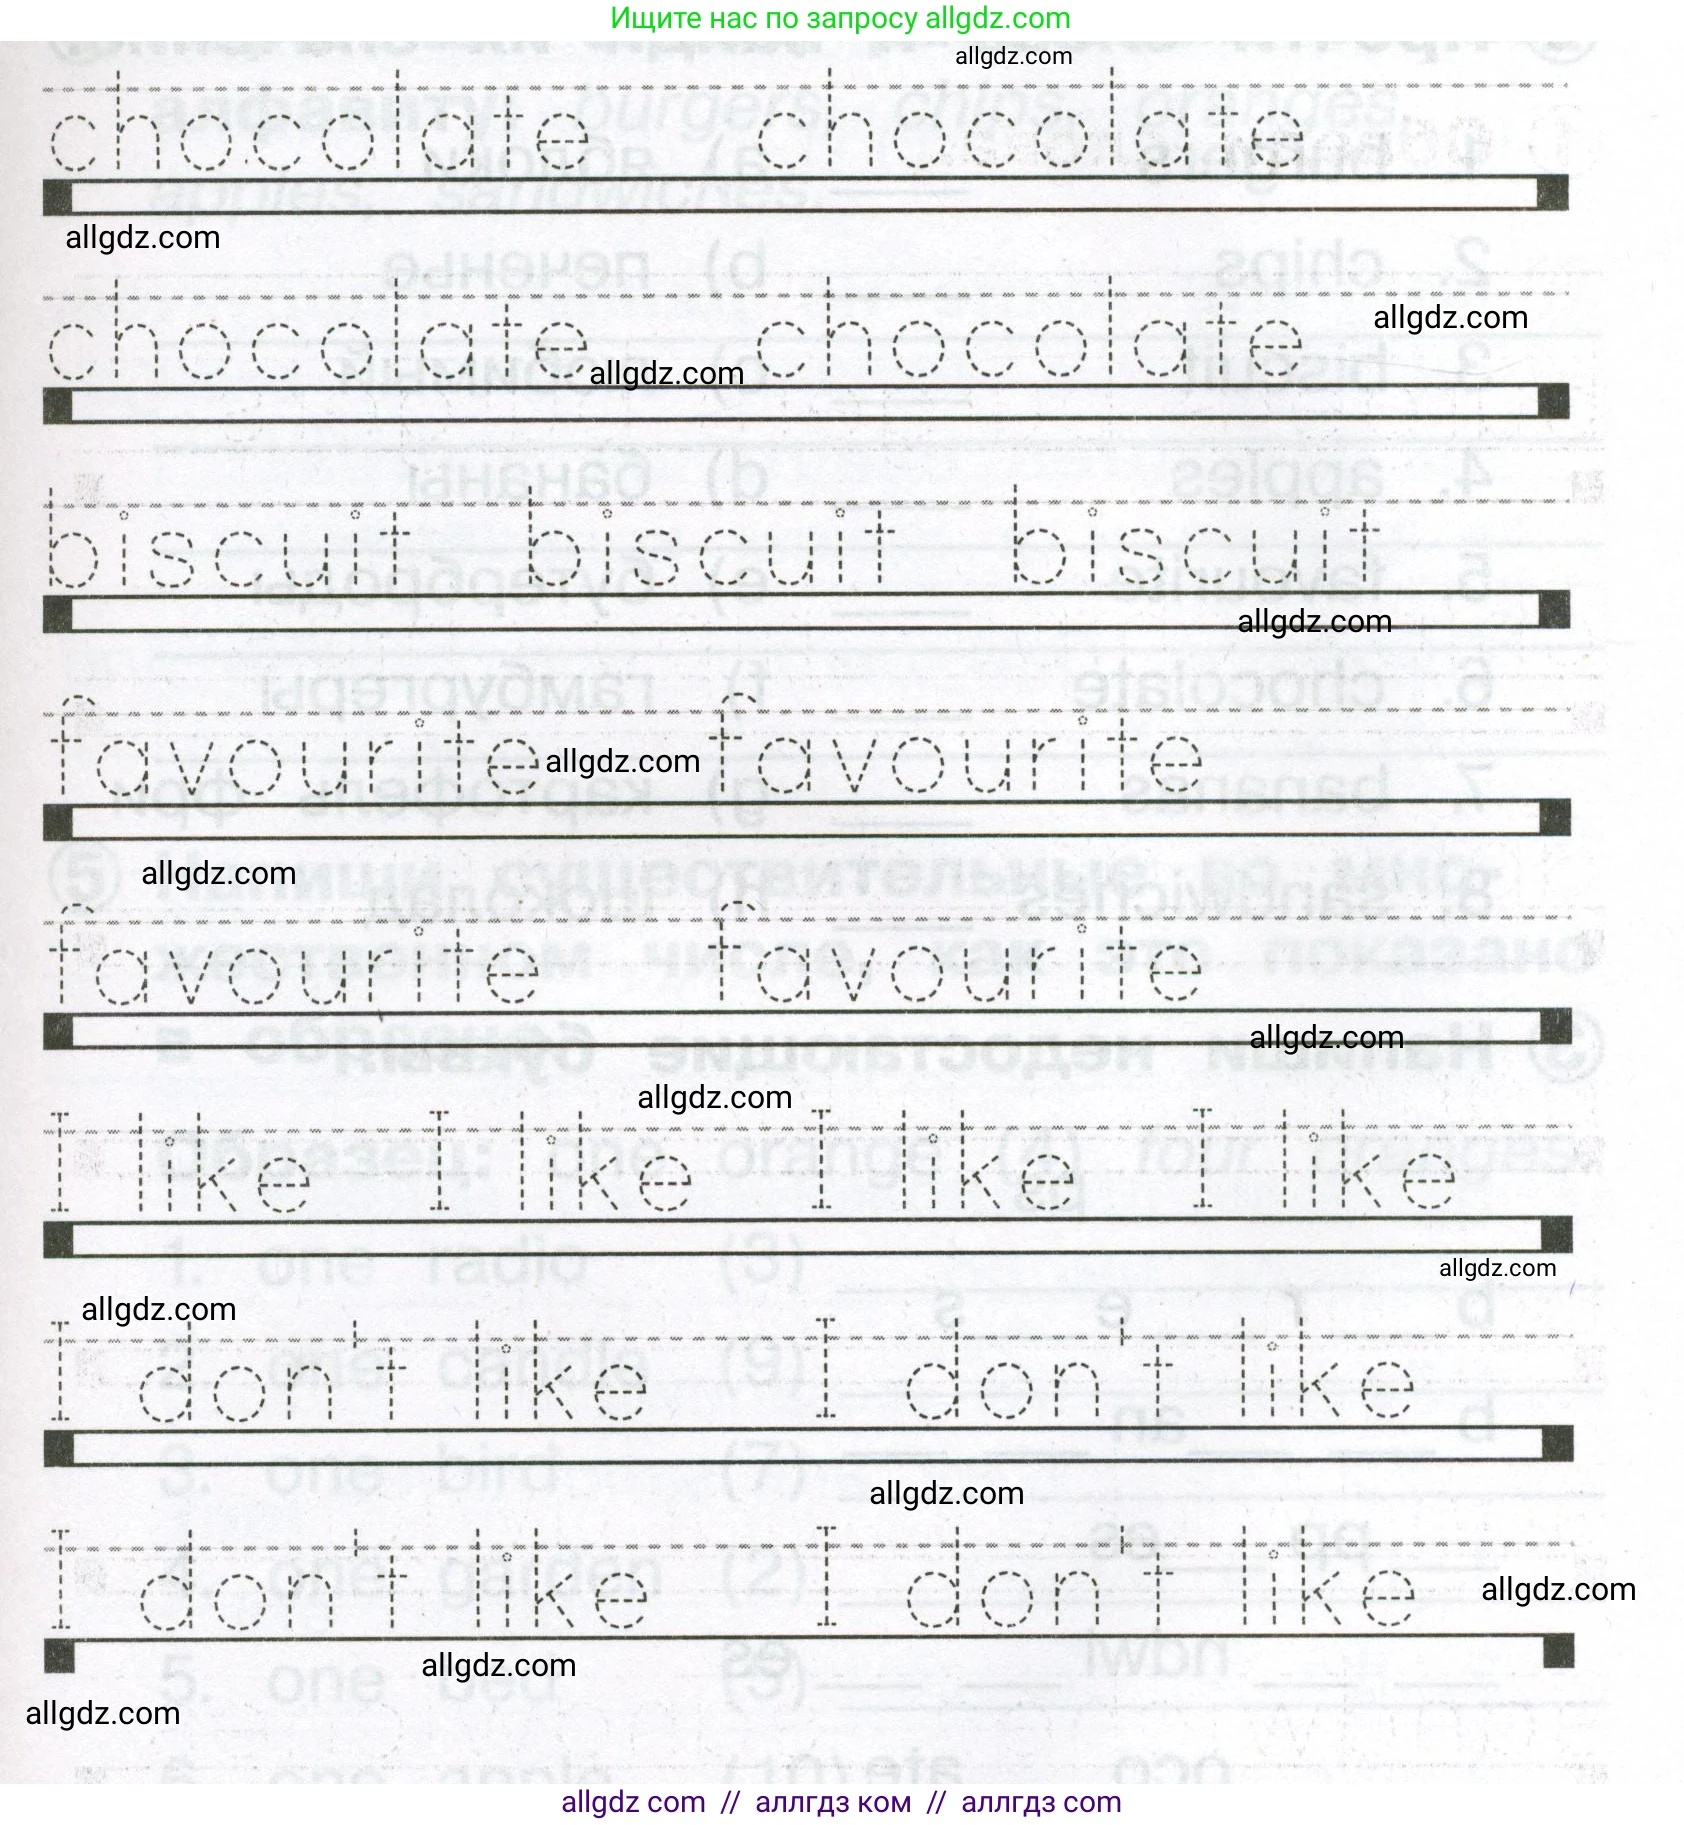 Ищите нас по запросу allgdz.com
allgdz.com
chocolate chocolate
allgdz.com
chocolate chocolate
allgdz.com
allgdz.com
biscuit biscuit biscuit
allgdz.com
favourite allgdz.com favourite
allgdz.com
favourite favourite
allgdz.com
allgdz.com
I like I like I like I like
allgdz.com
allgdz.com
I don't like I don't like
allgdz.com
I don't like I don't like
allgdz.com
allgdz.com
allgdz.com
allgdz com // аллгдз ком // аллгдз com